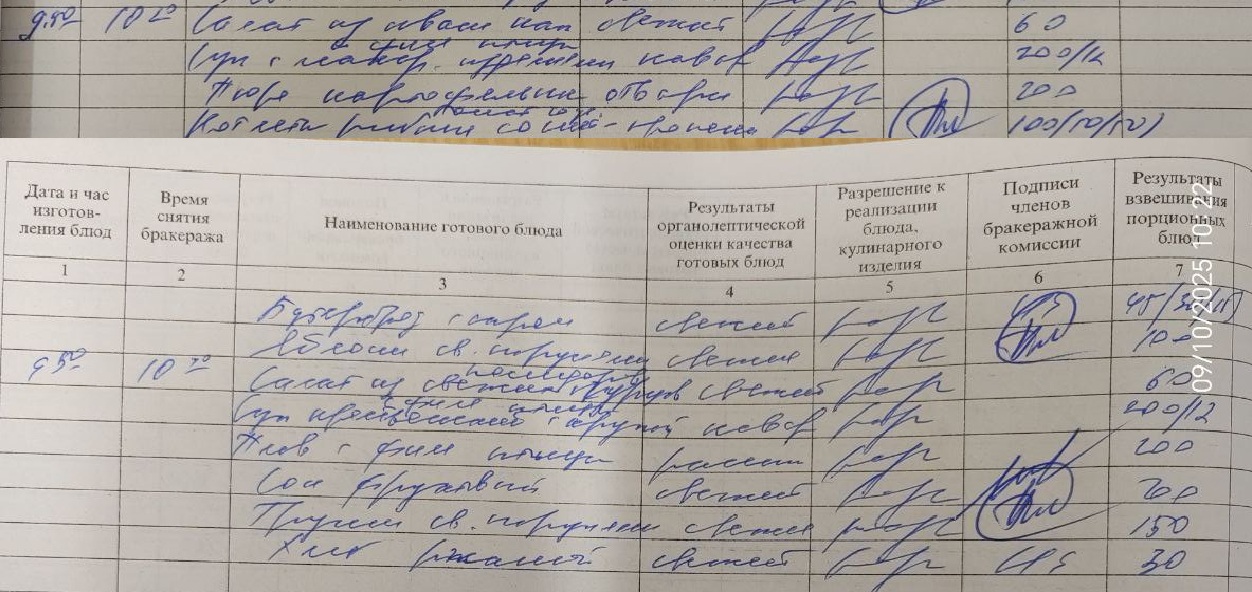 9.50 10 20 Салат из квашен кап свежий разр 60
филе птицы
Суп с макар. изделиями навар разр 200/12
Пюре картофельн отварн разр 200
Котлеты рыбные разр 100/50/50
Дата и час изготов-ления блюд Время снятия бракеража Наименование готового блюда Результаты органолептической оценки качества готовых блюд Разрешение к реализации блюда, кулинарного изделия Подписи членов бракеражной комиссии Результаты взвешивания порционных блюд
1 2 3 4 5 6 7
Бутерброд с сыром свежий разр
Яблоки св. порциями свежие разр 100
9 50 10 20 Салат из свежих огурцов свежий разр 60
филе птицы
Суп крестьянский с крупой навар разр 200/12
Плов с филе птицы рассып разр 200
Сок фруктовый свежий разр 200
Груши св. порциями свежие разр 150
Хлеб ржаной свежий разр 30
09/10/2025 10:22